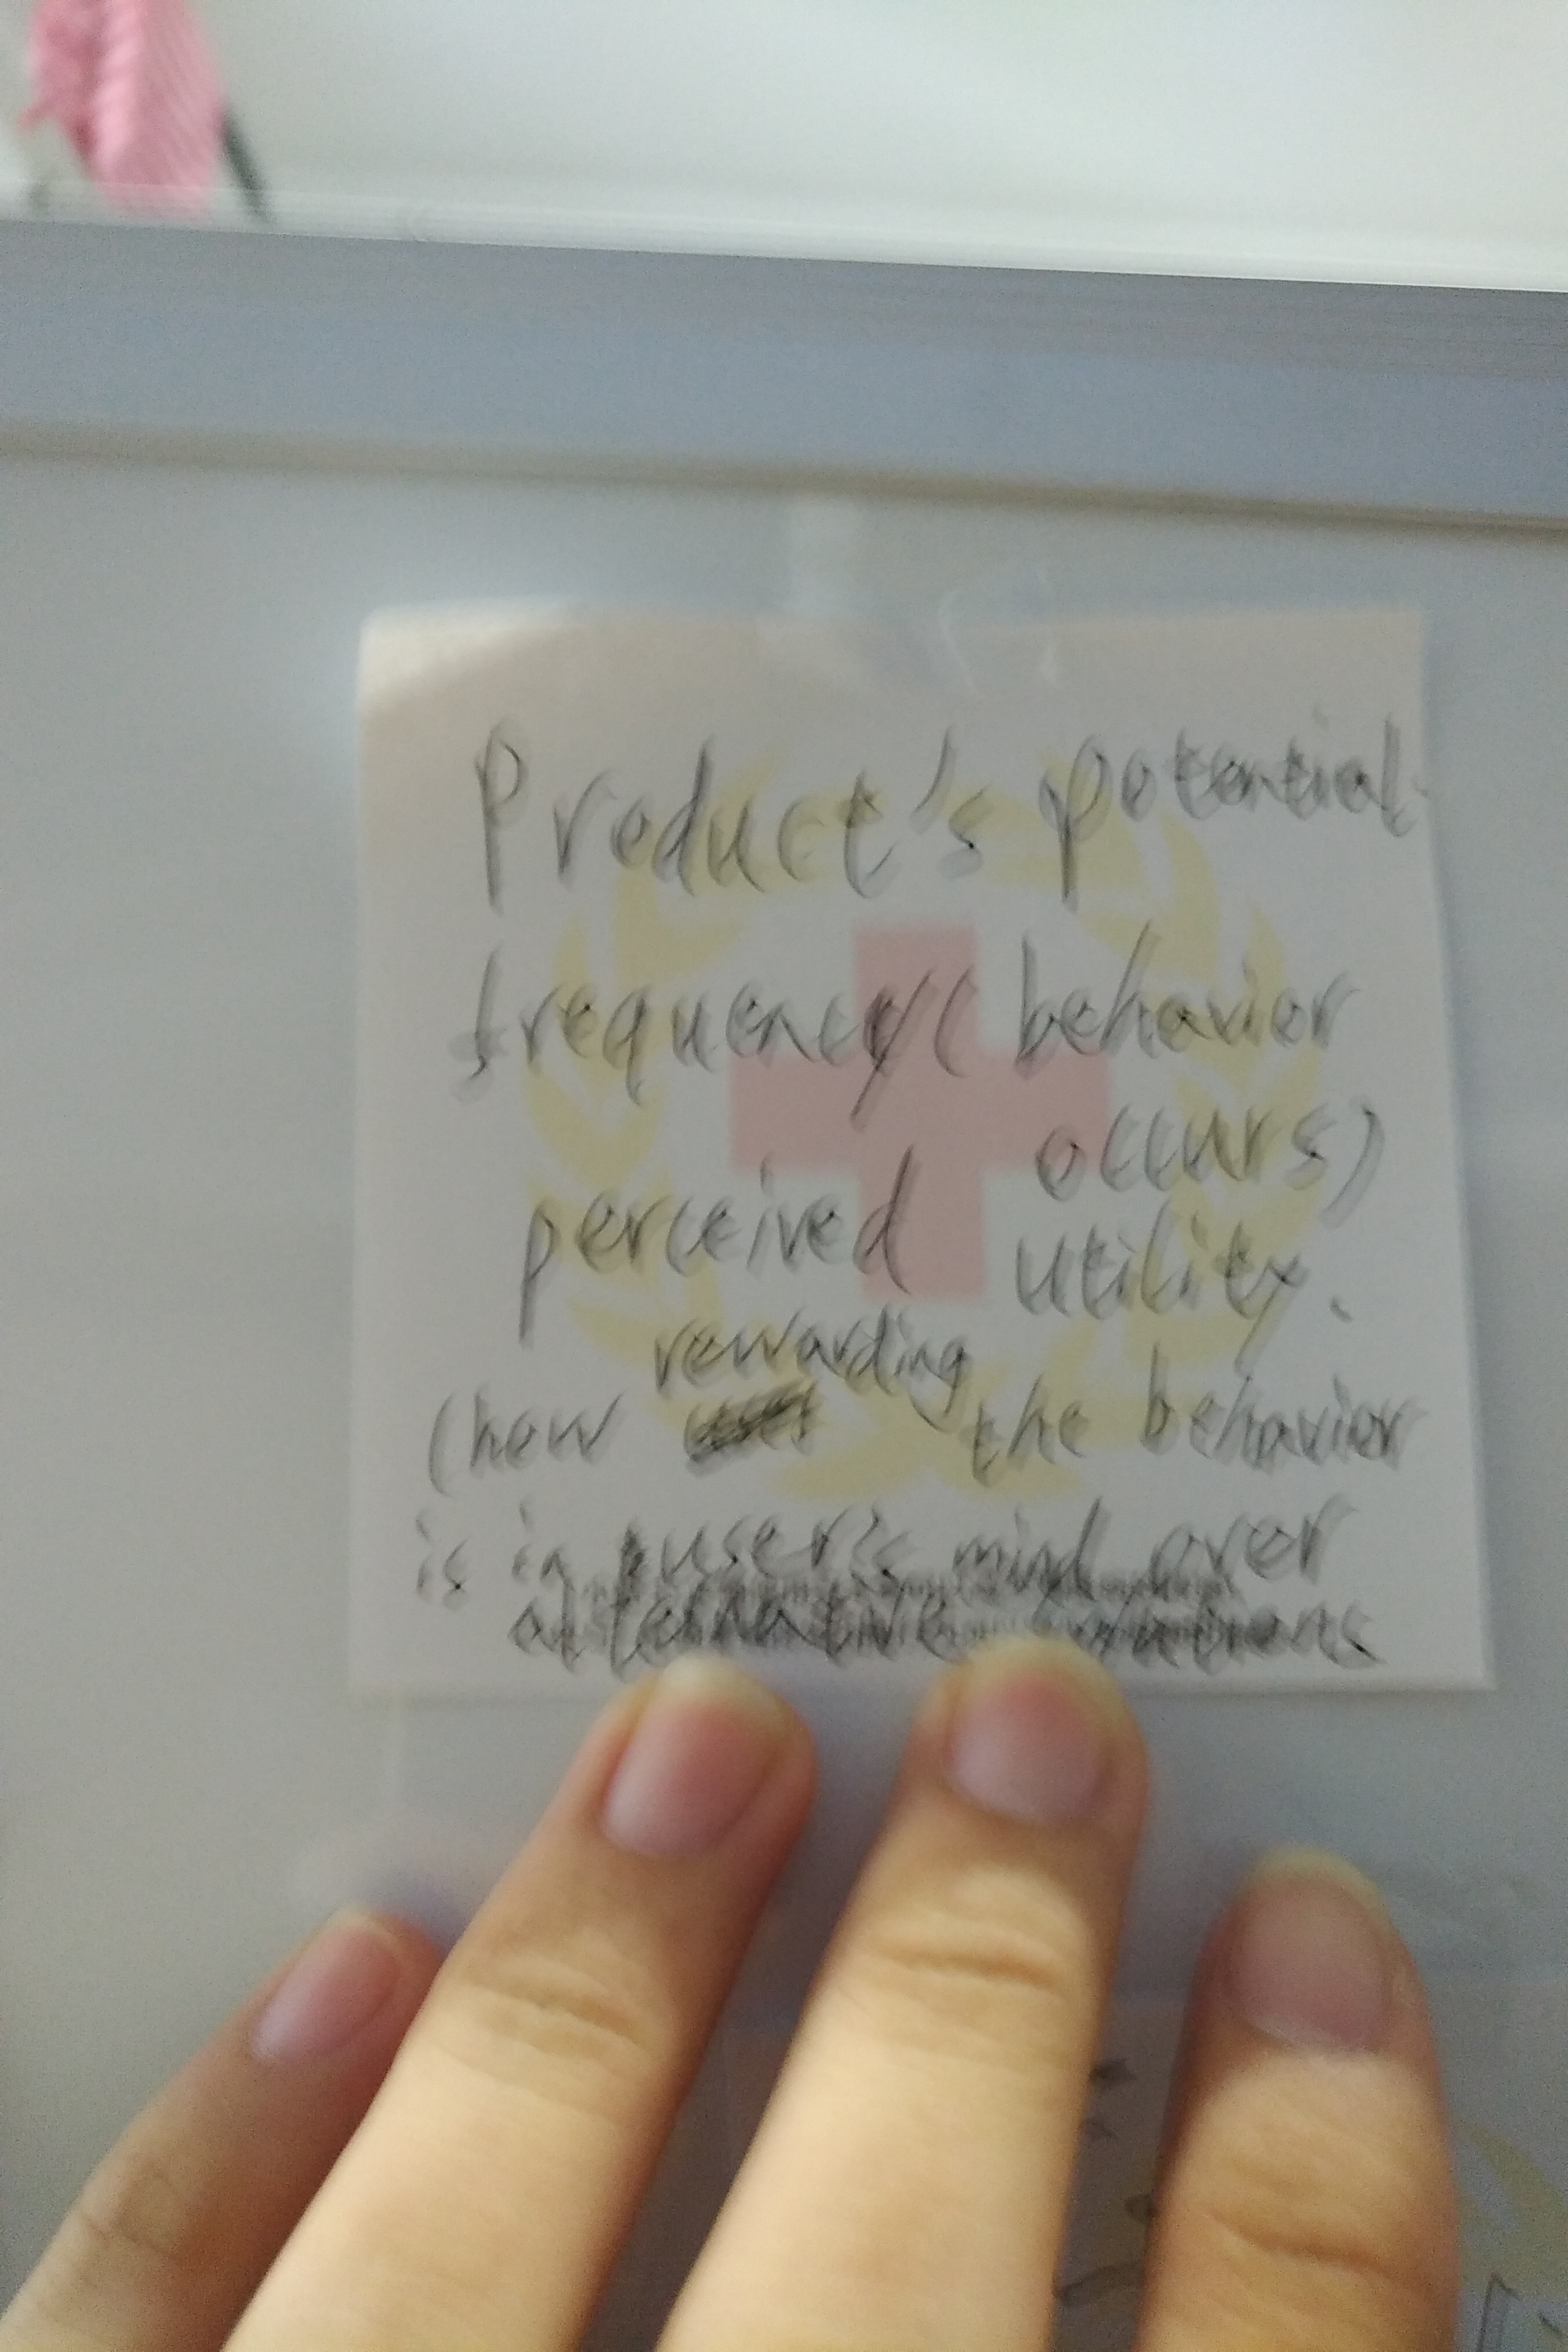 Product's potential.
frequency (behavior
occurs)
perceived utility.
rewarding
(how the behavior
is in user's mind over
alternative solutions